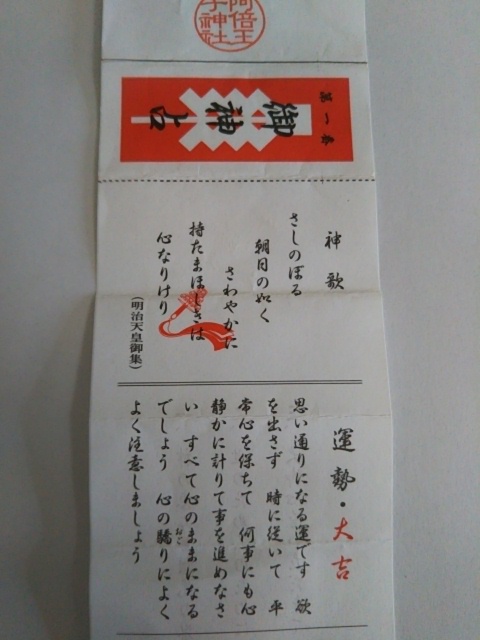 阿倍王
子神社
第一番
御神占
神歌
さしのぼる
朝日の如く
さわやかに
持たまほしきは
心なりけり
(明治天皇御集)
運勢・大吉
思い通りになる運です 欲
を出さず 時に従いて 平
常心を保ちて 何事にも心
静かに計りて事を進めなさ
い すべて心のままになる
でしょう 心の驕りによく
おご
よく注意しましょう